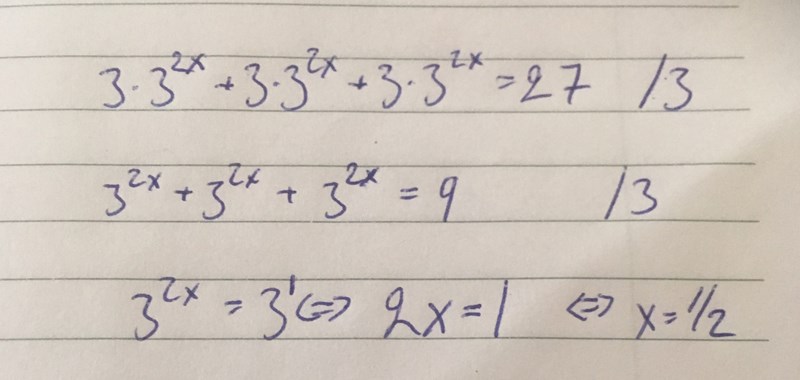 3·3^2x + 3·3^2x + 3·3^2x = 27 /3
3^2x + 3^2x + 3^2x = 9 /3
3^2x = 3^1 ⇔ 2x = 1 ⇔ x = 1/2